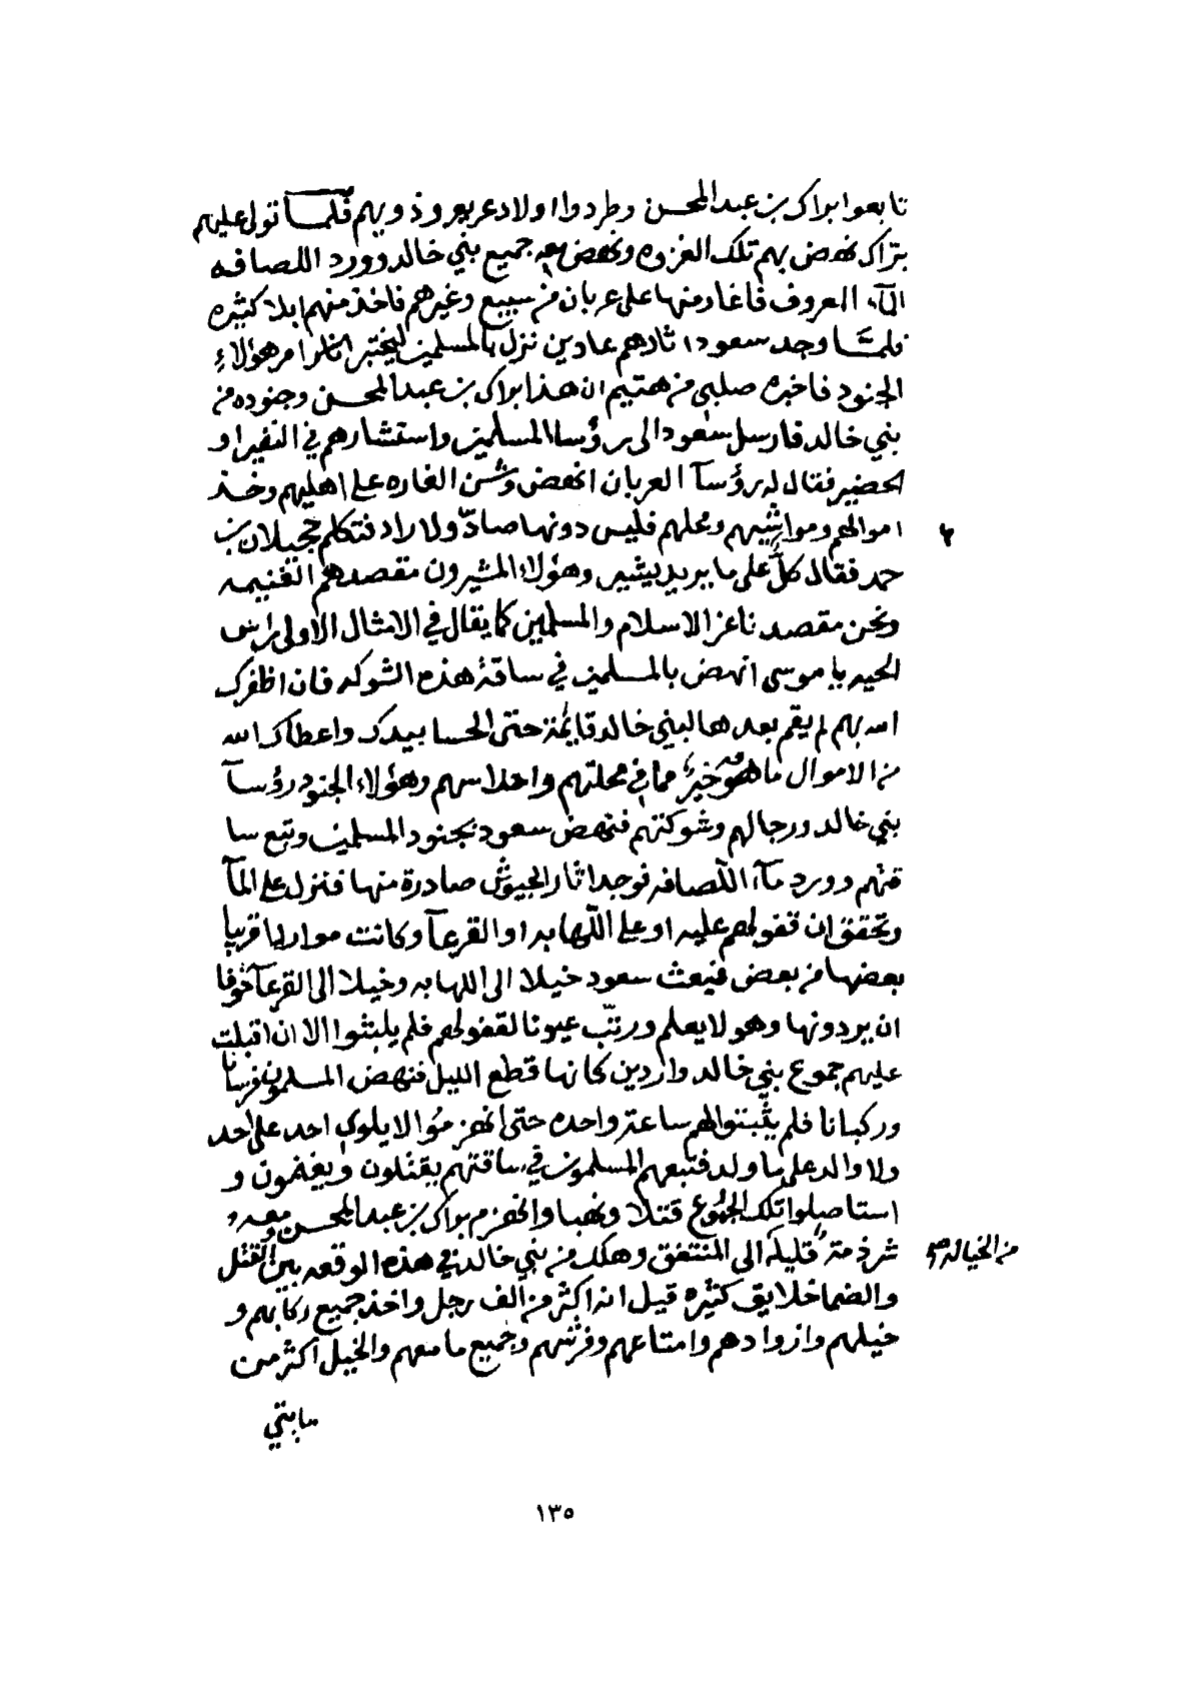 تابعوا براك بن عبد المحسن وطردوا اولاد عريعر وذويهم فلما تولى عليهم
براك نهض بهم تلك الغزوه ونهض معه جميع بني خالد وورد اللصافه
المآء المعروف فاغار منها على عربان من سبيع وغيرهم فاخذ منهم ابلا كثيره
فلما وجد سعود اثارهم عادين نزل بالمسلمين ليختبر امر هؤلاء
الجنود فاخبره صلبي من هتيم ان هذا براك بن عبد المحسن وجنوده من
بني خالد فارسل سعود الى رؤسا المسلمين واستشارهم في النفير او
الحضير فقال له رؤسآ العربان انهض وشن الغاره على اهليهم وخذ
اموالهم ومواشيهم ومحلهم فليس دونها صادّ ولا راد فتكلم حجيلان بن
حمد فقال كلٌ على ما يريد يشير وهؤلاء المشيرون مقصدهم الغنيمه
ونحن مقصدنا عز الاسلام والمسلمين كما يقال في الامثال الاولى براس
الحيه يا موسى انهض بالمسلمين في ساقة هذه الشوكه فان اظفرك
الله بهم لم يقم بعدها لبني خالد قايمة حتى الحسا بيدك واعطاك الله
من الاموال ما هو خير مما في محلتهم واحلاسهم وهؤلاء الجنود رؤسآ
بني خالد ورجالهم وشوكتهم فنهض سعود بجنود المسلمين وتبع سا
قتهم وورد مآء اللصافه فوجد اثار الجيوش صادرة منها فنزل على المآ
وتحقق ان قفولهم عليه او على اللهابه او القرعآ وكانت مواردا قريبا
بعضها من بعض فبعث سعود خيلا الى اللهابه وخيلا الى القرعآ خوفا
ان يردونها وهو لا يعلم ورتّب عيونا لقفولهم فلم يلبثوا الا ان اقبلت
عليهم جموع بني خالد واردين كانها قطع الليل فنهض المسلمون فرسانا
وركبانا فلم يثبتوا لهم ساعة واحده حتى انهزموا لا يلوي احد على احد
ولا والد على ما ولد فتبعهم المسلمون في ساقتهم يقتلون ويغنمون و
استاصلوا تلك الجموع قتلا ونهبا وانهزم براك بن عبد المحسن ومعه
شرذمة قليلة الى المنتفق وهلك من بني خالد في هذه الوقعه بين القتل
من الخياله صح
والضما خلايق كثيره قيل انه اكثر من الف رجل واخذ جميع ركابهم و
خيلهم وازوادهم وامتاعهم وفرشهم وجميع ما معهم والخيل اكثر من
مايتي
١٣٥